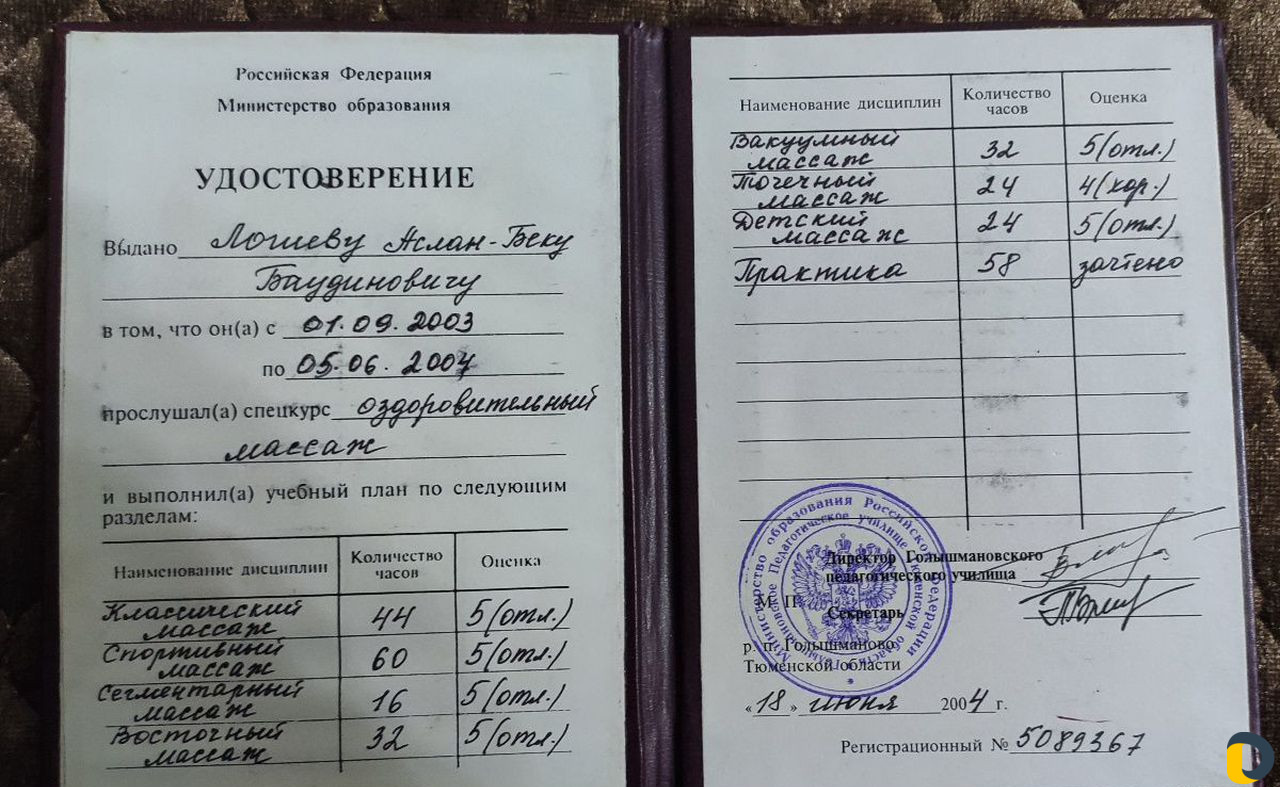 Российская Федерация
Министерство образования
УДОСТОВЕРЕНИЕ
Выдано Лошеву Аслан-Беку
Баудиновичу
в том, что он(а) с 01.09.2003
по 05.06.2004
прослушал(а) спецкурс оздоровительный
массаж
и выполнил(а) учебный план по следующим
разделам:
Наименование дисциплин Количество часов Оценка
Классический массаж 44 5(отл.)
Спортивный массаж 60 5(отл.)
Сегментарный массаж 16 5(отл.)
Восточный массаж 32 5(отл.)
Наименование дисциплин Количество часов Оценка
Вакуумный массаж 32 5(отл.)
Точечный массаж 24 4(хор.)
Детский массаж 24 5(отл.)
Практика 58 зачтено
Министерство образования Российской Федерации
Голышмановское Педагогическое училище Тюменской области
Директор Голышмановского
педагогического училища
М. П.
Секретарь
р. п. Голышманово
Тюменской области
«18» июня 2004 г.
Регистрационный № 5089367